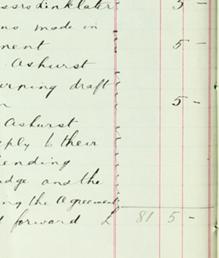 5 -
ns made in
ment 5 -
Ashurst
rning draft
n 5 -
Ashurst
eply to their
ending
dge and the
ng the agreement
d forward £ 81 5 -